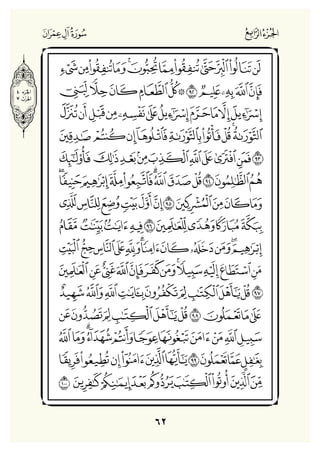 سُورَةُ آلِ عِمْرَانَ
الجُزْءُ الرَّابِعُ
لَن تَنَالُوا۟ ٱلْبِرَّ حَتَّىٰ تُنفِقُوا۟ مِمَّا تُحِبُّونَ ۚ وَمَا تُنفِقُوا۟ مِن شَىْءٍ
فَإِنَّ ٱللَّهَ بِهِۦ عَلِيمٌ ٩٢ ۞ كُلُّ ٱلطَّعَامِ كَانَ حِلًّا لِّبَنِىٓ
إِسْرَٰٓءِيلَ إِلَّا مَا حَرَّمَ إِسْرَٰٓءِيلُ عَلَىٰ نَفْسِهِۦ مِن قَبْلِ أَن تُنَزَّلَ
ٱلتَّوْرَىٰةُ ۗ قُلْ فَأْتُوا۟ بِٱلتَّوْرَىٰةِ فَٱتْلُوهَآ إِن كُنتُمْ صَٰدِقِينَ
٩٣ فَمَنِ ٱفْتَرَىٰ عَلَى ٱللَّهِ ٱلْكَذِبَ مِنۢ بَعْدِ ذَٰلِكَ فَأُو۟لَٰٓئِكَ
هُمُ ٱلظَّٰلِمُونَ ٩٤ قُلْ صَدَقَ ٱللَّهُ ۗ فَٱتَّبِعُوا۟ مِلَّةَ إِبْرَٰهِيمَ حَنِيفًا
وَمَا كَانَ مِنَ ٱلْمُشْرِكِينَ ٩٥ إِنَّ أَوَّلَ بَيْتٍ وُضِعَ لِلنَّاسِ لَلَّذِى
بِبَكَّةَ مُبَارَكًا وَهُدًى لِّلْعَٰلَمِينَ ٩٦ فِيهِ ءَايَٰتٌۢ بَيِّنَٰتٌ مَّقَامُ
إِبْرَٰهِيمَ ۖ وَمَن دَخَلَهُۥ كَانَ ءَامِنًا ۗ وَلِلَّهِ عَلَى ٱلنَّاسِ حِجُّ ٱلْبَيْتِ
مَنِ ٱسْتَطَاعَ إِلَيْهِ سَبِيلًا ۚ وَمَن كَفَرَ فَإِنَّ ٱللَّهَ غَنِىٌّ عَنِ ٱلْعَٰلَمِينَ
٩٧ قُلْ يَٰٓأَهْلَ ٱلْكِتَٰبِ لِمَ تَكْفُرُونَ بِـَٔايَٰتِ ٱللَّهِ وَٱللَّهُ شَهِيدٌ
عَلَىٰ مَا تَعْمَلُونَ ٩٨ قُلْ يَٰٓأَهْلَ ٱلْكِتَٰبِ لِمَ تَصُدُّونَ عَن
سَبِيلِ ٱللَّهِ مَنْ ءَامَنَ تَبْغُونَهَا عِوَجًا وَأَنتُمْ شُهَدَآءُ ۗ وَمَا ٱللَّهُ
بِغَٰفِلٍ عَمَّا تَعْمَلُونَ ٩٩ يَٰٓأَيُّهَا ٱلَّذِينَ ءَامَنُوٓا۟ إِن تُطِيعُوا۟ فَرِيقًا
مِّنَ ٱلَّذِينَ أُوتُوا۟ ٱلْكِتَٰبَ يَرُدُّوكُم بَعْدَ إِيمَٰنِكُمْ كَٰفِرِينَ ١٠٠
٦٢